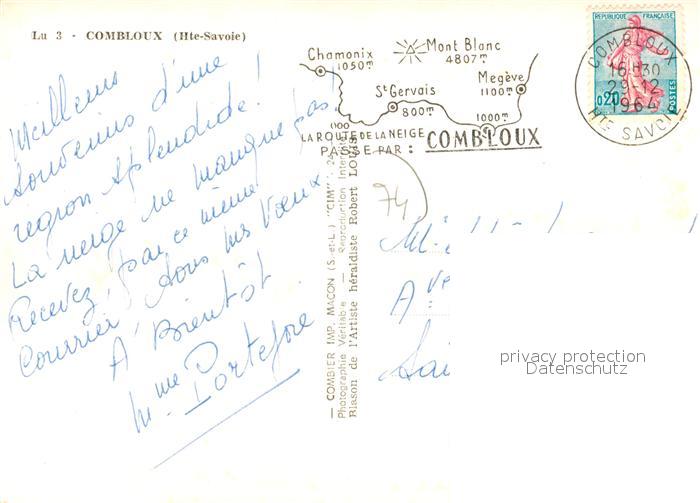 Lu 3 - COMBLOUX (Hte-Savoie)
Meilleurs
Souvenirs d'une
région splendide !
La neige ne manque pas !
Recevez par ce même
Courrier tous mes Vœux
A Bientôt
Mme Portefoié
Chamonix
1050m
Mont Blanc
4807m
St Gervais
800m
Megève
1100m
1000m
LA ROUTE DE LA NEIGE
PASSE PAR : COMBLOUX
REPUBLIQUE FRANÇAISE
0,20
POSTES
COMBLOUX
16H30
29-12
1964
HTE SAVOIE
— COMBIER IMP. MACON (S.-et-L.) "CIM"
Photographie Véritable — Reproduction
Blason de l'Artiste héraldiste Robert LOUIS
74
Ave
Sai
privacy protection
Datenschutz